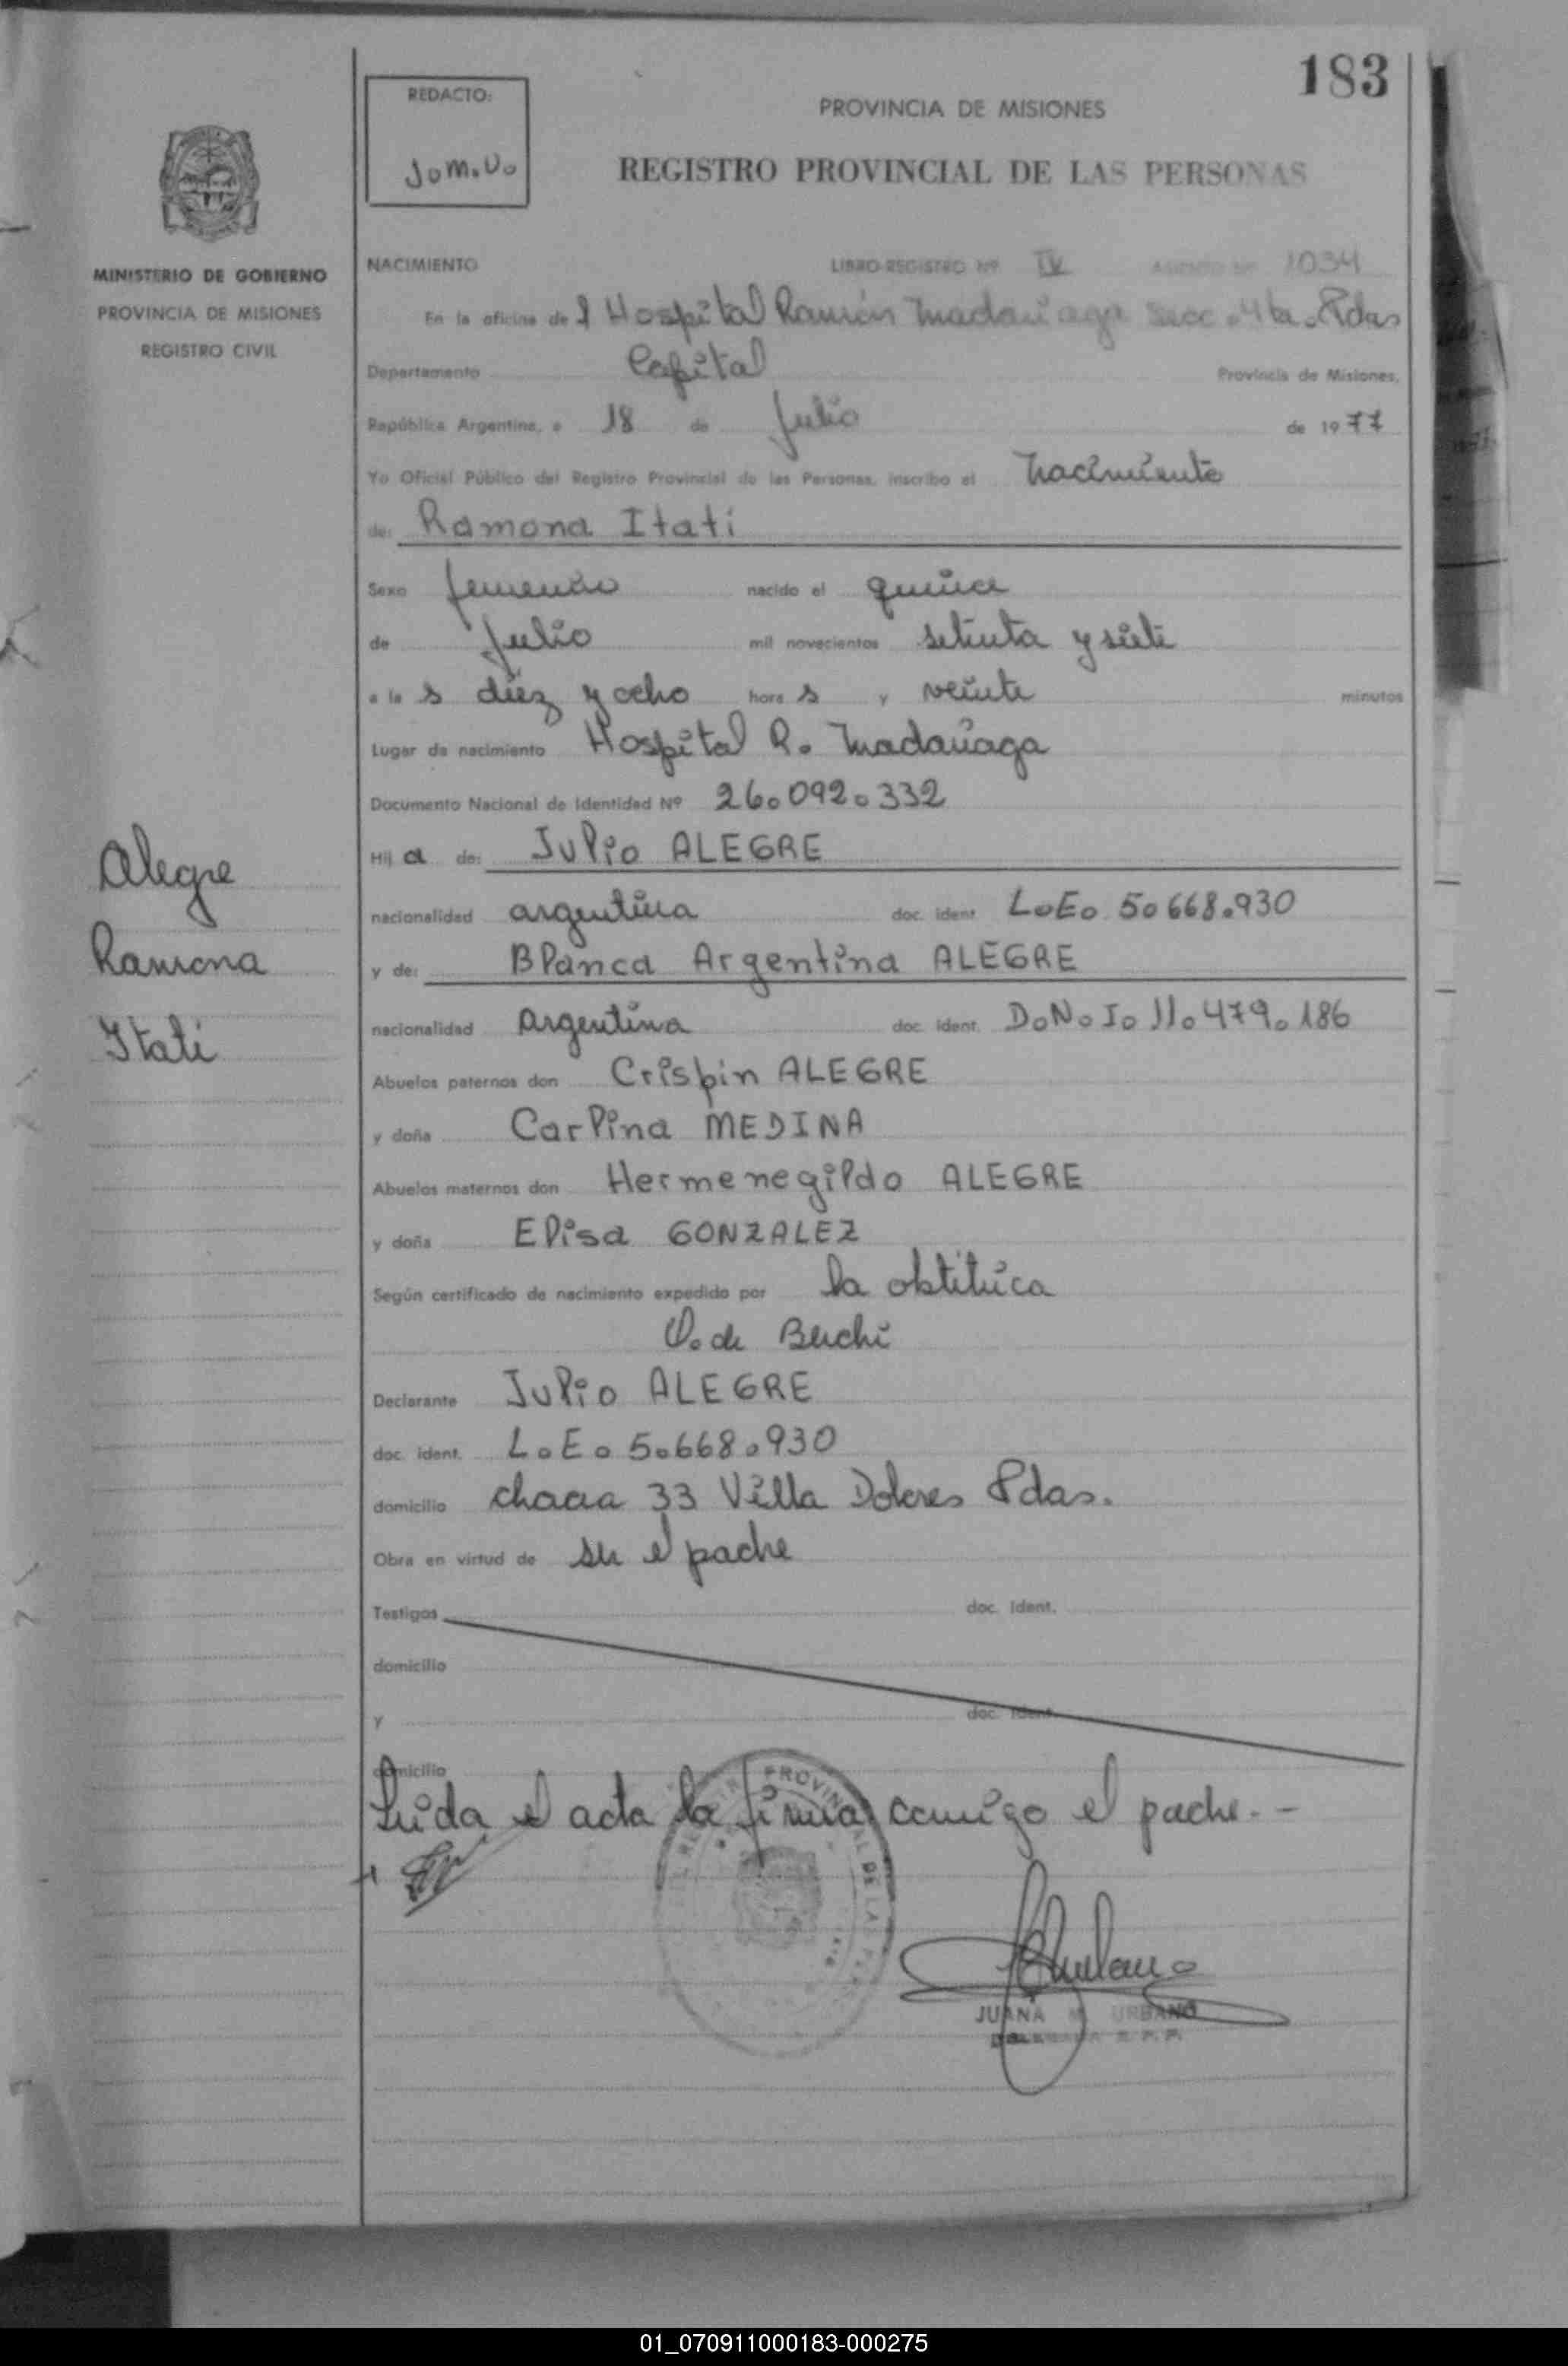 183
REDACTO:
J.M.U.
PROVINCIA DE MISIONES
REGISTRO PROVINCIAL DE LAS PERSONAS
MINISTERIO DE GOBIERNO
PROVINCIA DE MISIONES
REGISTRO CIVIL
NACIMIENTO LIBRO-REGISTRO Nº IV ASIENTO Nº 1034
En la oficina del Hospital Ramón Madariaga Secc. 4ta. Pdas
Departamento Capital Provincia de Misiones,
República Argentina, a 18 de Julio de 1977
Yo Oficial Público del Registro Provincial de las Personas, inscribo el nacimiento
de: Ramona Itatí
Sexo femenino nacido el quince
de Julio mil novecientos setenta y siete
a las diez y ocho horas y veinte minutos
Lugar de nacimiento Hospital R. Madariaga
Documento Nacional de Identidad Nº 26.092.332
Hija de: Julio ALEGRE
nacionalidad argentina doc. ident. L.E. 5.668.930
y de: Blanca Argentina ALEGRE
nacionalidad argentina doc. ident. D.N.I. 11.479.186
Abuelos paternos don Crispin ALEGRE
y doña Carlina MEDINA
Abuelos maternos don Hermenegildo ALEGRE
y doña Elisa GONZALEZ
Según certificado de nacimiento expedido por la obstétrica
O. de
Declarante Julio ALEGRE
doc. ident. L.E. 5.668.930
domicilio chacra 33 Villa Dolores Pdas.
Obra en virtud de ser el padre
Testigos doc. ident.
domicilio
y doc. ident.
domicilio
Leída el acta la firma conmigo el padre.-
Alegre
Ramona
Itatí
JUANA M. URBANO
DELEGADA R. P. P.
01_070911000183-000275